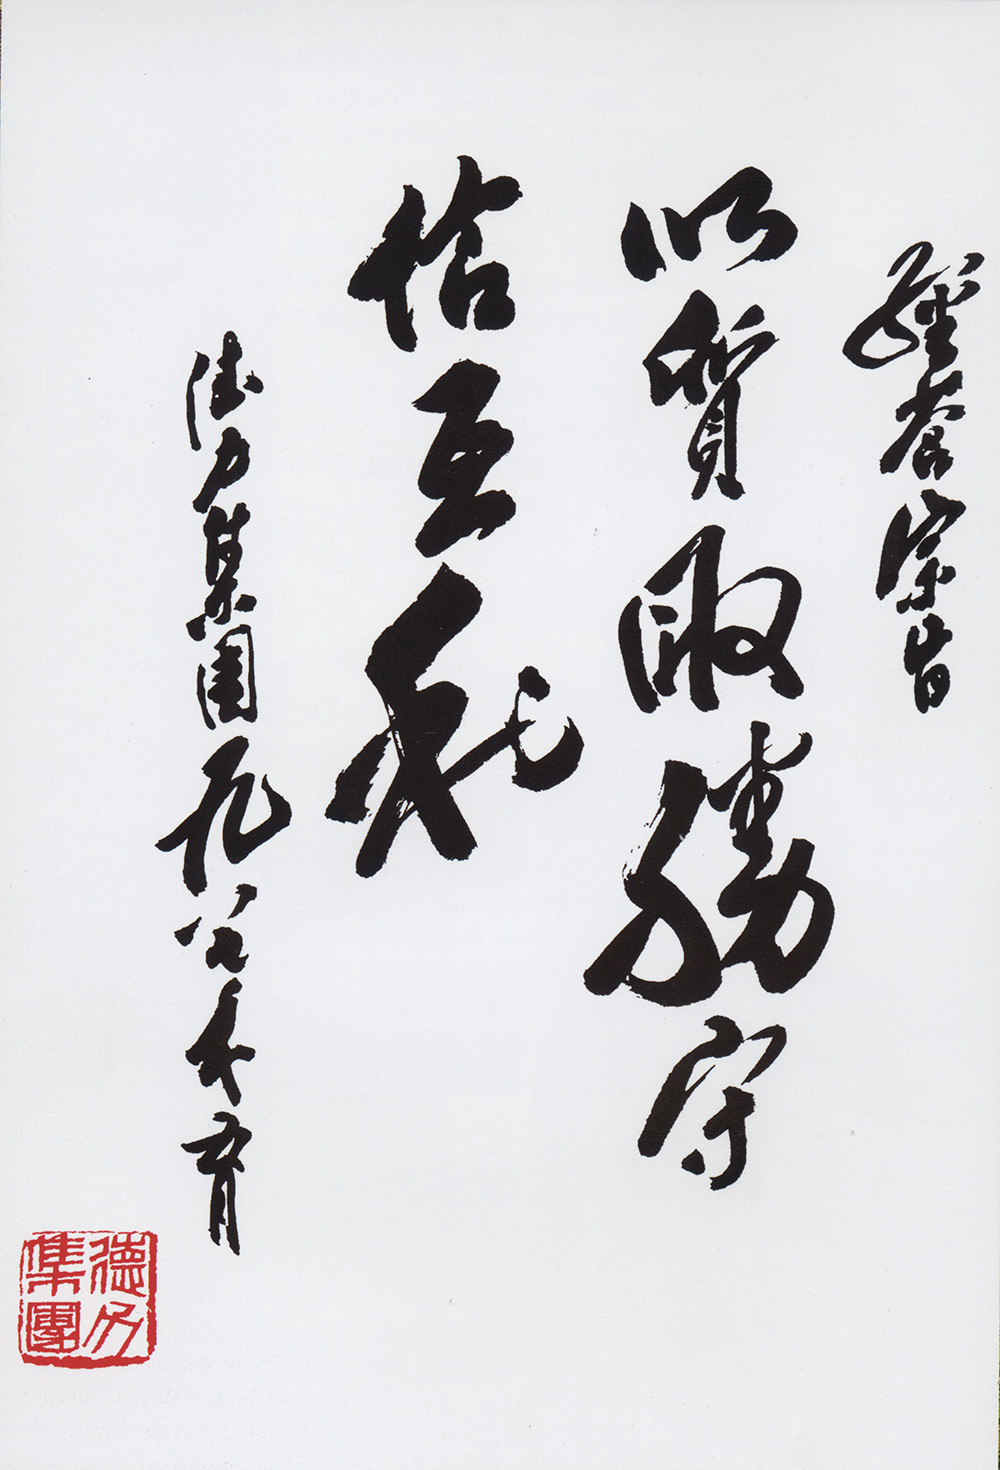 經營宗旨
以質取勝守
信互利
德力集團九八年五月
德力
集團